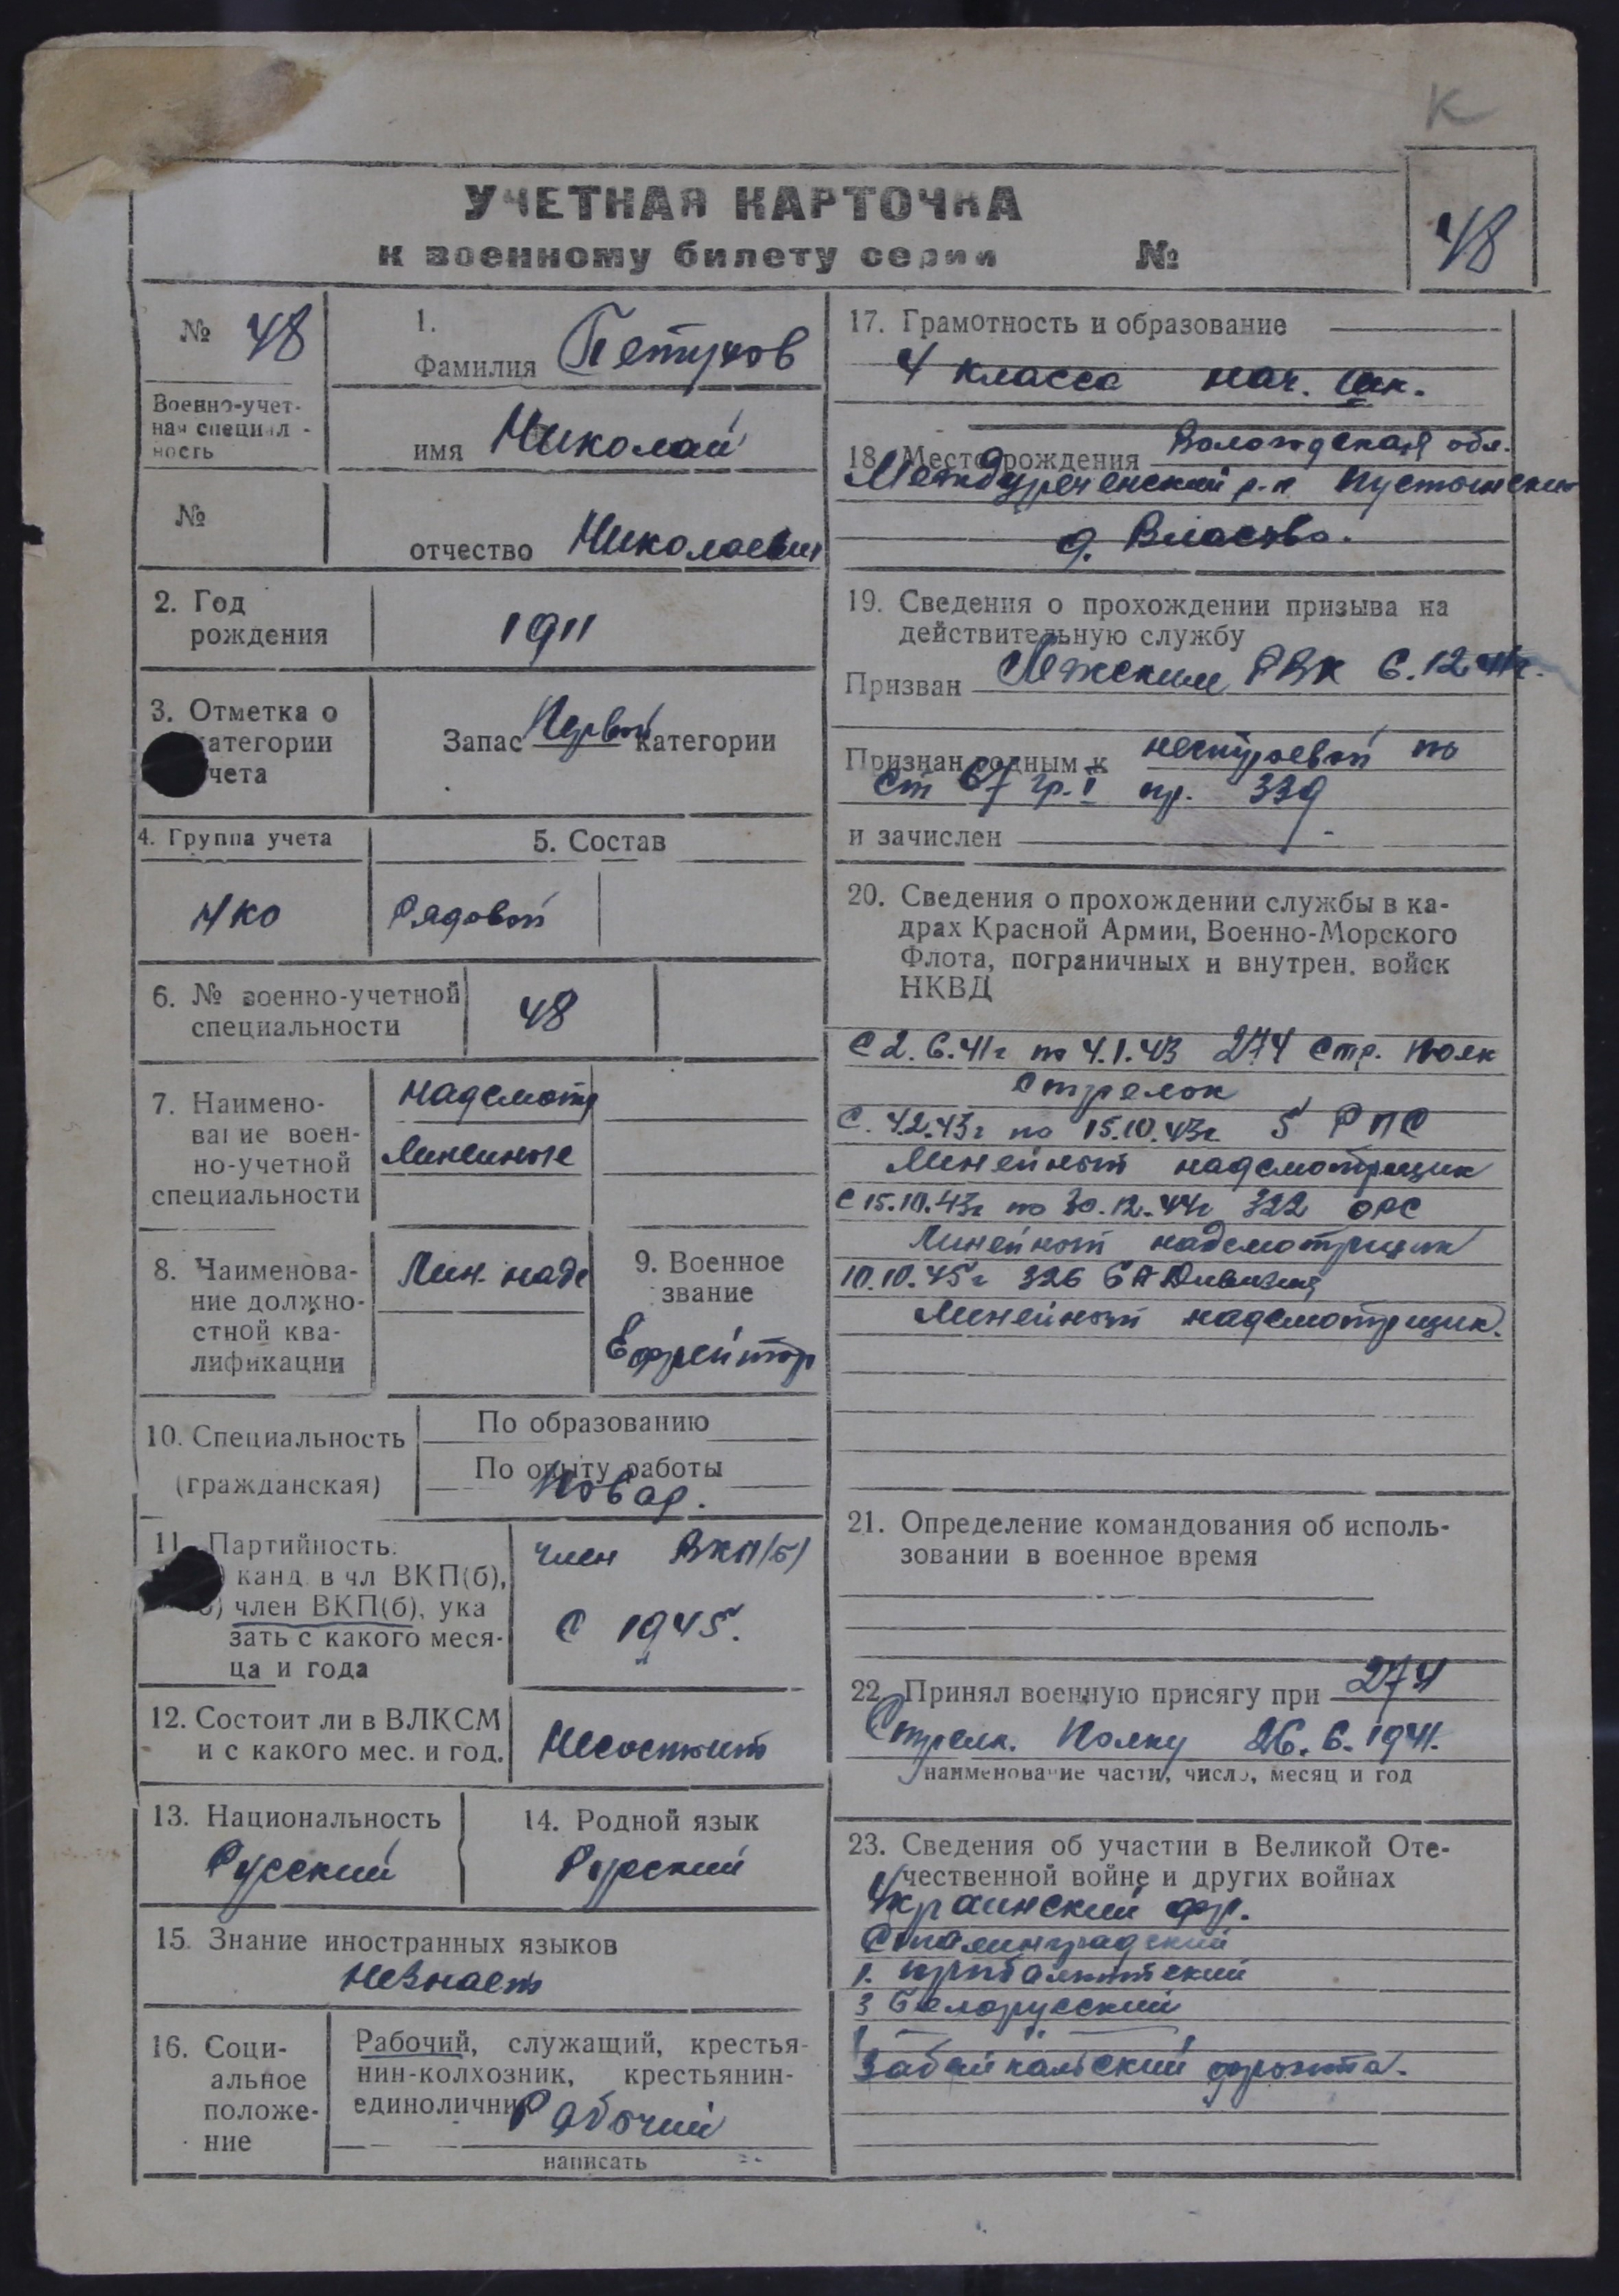 К
УЧЕТНАЯ КАРТОЧКА
к военному билету серии №
48
№ 48
Военно-учет-
ная специал -
ность
№
1.
Фамилия Петухов
имя Николай
отчество Николаевич
2. Год
рождения
1911
3. Отметка о
категории
учета
Запас Первой категории
4. Группа учета
НКО
5. Состав
Рядовой
6. № военно-учетной
специальности
48
7. Наимено-
вание воен-
но-учетной
специальности
надсмотр
линейные
8. Наименова-
ние должно-
стной ква-
лификации
Лин. надс
9. Военное
звание
Ефрейтор
10. Специальность
(гражданская)
По образованию
По опыту работы
Повар.
11. Партийность:
) канд. в чл ВКП(б),
б) член ВКП(б), ука
зать с какого меся-
ца и года
член ВКП(б)
с 1945.
12. Состоит ли в ВЛКСМ
и с какого мес. и год.
Несостоит
13. Национальность
Русский
14. Родной язык
Русский
15. Знание иностранных языков
Незнает
16. Соци-
альное
положе-
ние
Рабочий, служащий, крестья-
нин-колхозник, крестьянин-
единоличник
Рабочий
написать
17. Грамотность и образование
4 класса нач. шк.
18. Место рождения Вологодская обл.
Междуреченский р-н Пустошский
д. Власово.
19. Сведения о прохождении призыва на
действительную службу
Призван Лежским РВК 6.12.41г.
Признан годным к нестроевой по
ст 67 гр. I пр. 339
и зачислен
20. Сведения о прохождении службы в ка-
драх Красной Армии, Военно-Морского
Флота, пограничных и внутрен. войск
НКВД
С 2.6.41г по 4.1.43 274 стр. полк
стрелок
С. 4.2.43г по 15.10.43г 5 РПС
Линейный надсмотрщик
С 15.10.43г по 30.12.44г 322 ОРС
Линейный надсмотрщик
10.10.45г 326 Дивизия
Линейный надсмотрщик.
21. Определение командования об исполь-
зовании в военное время
22. Принял военную присягу при 274
Стрелк. Полку 26.6.1941.
наименование части, число, месяц и год
23. Сведения об участии в Великой Оте-
чественной войне и других войнах
Украинский фр.
Сталинградский
1. прибалтитский
3 Белорусский
Забайкальский фронта.